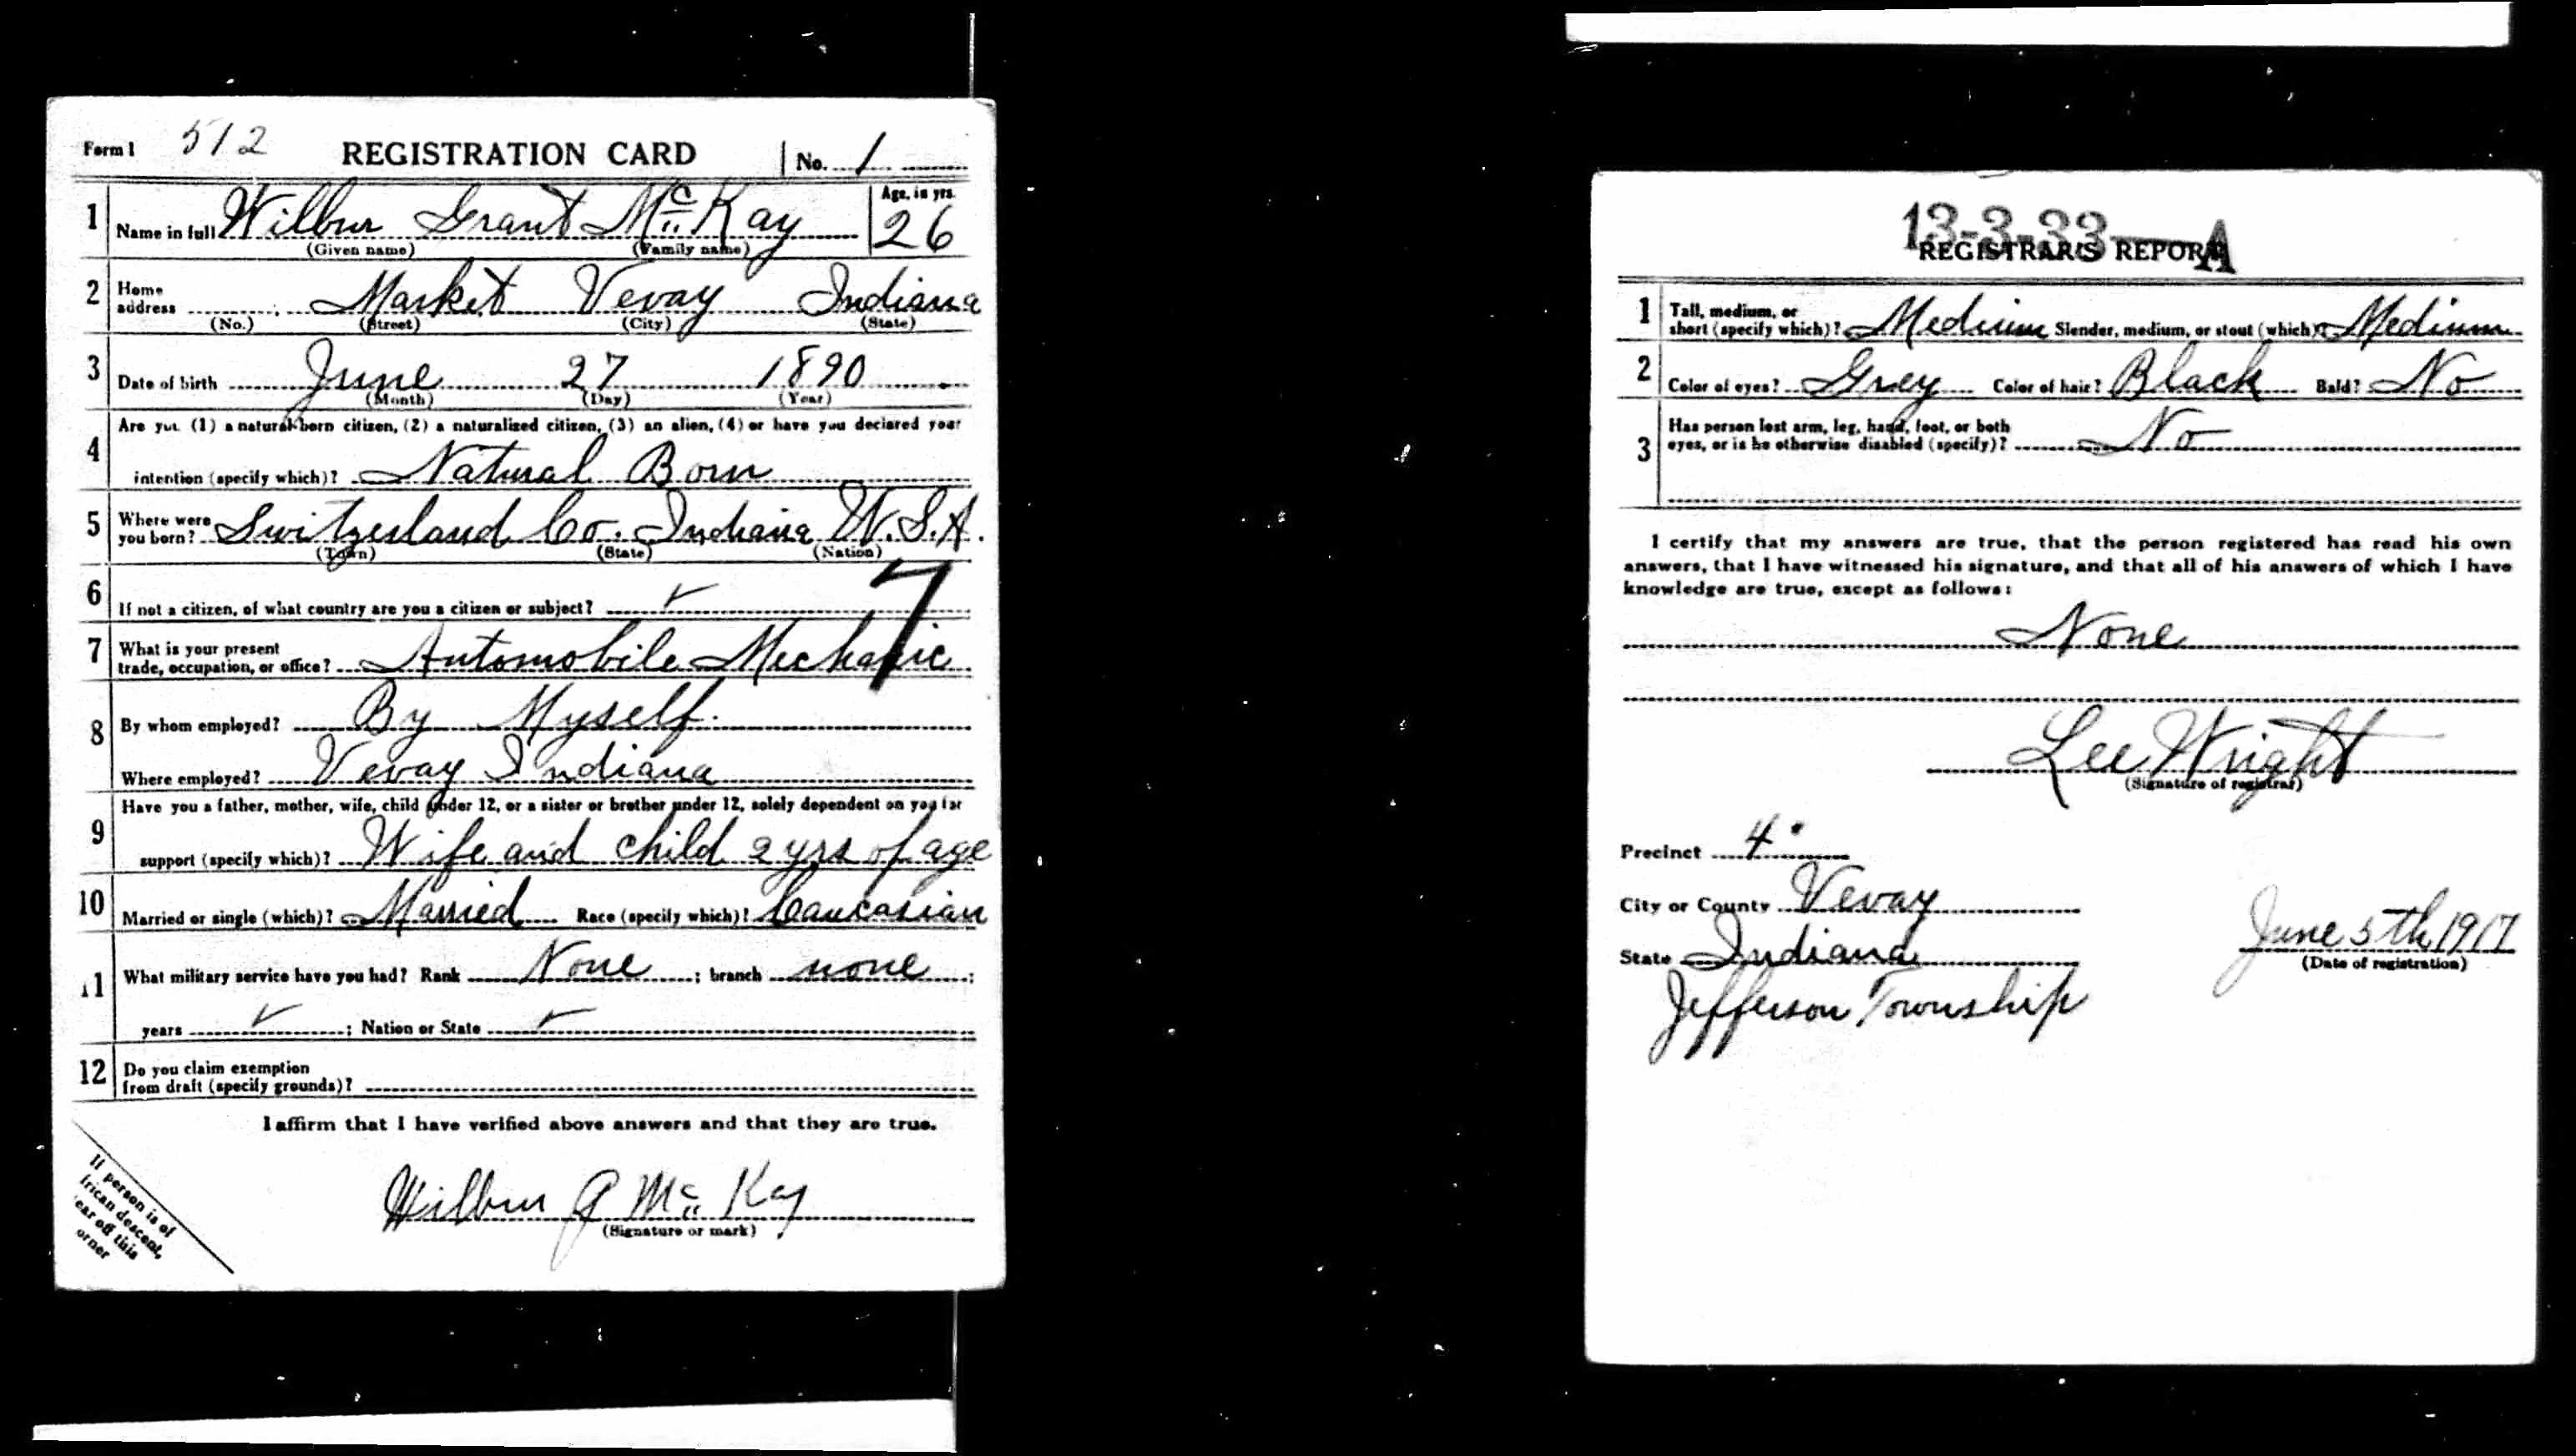 Form 1 512 REGISTRATION CARD No. 1
1 Name in full Wilbur Grant McKay Age, in yrs. 26
(Given name) (Family name)
2 Home address Market Vevay Indiana
(No.) (Street) (City) (State)
3 Date of birth June 27 1890
(Month) (Day) (Year)
Are you (1) a natural-born citizen, (2) a naturalized citizen, (3) an alien, (4) or have you declared your
4 intention (specify which)? Natural Born
5 Where were you born? Switzerland Co. Indiana U.S.A.
(Town) (State) (Nation)
6 If not a citizen, of what country are you a citizen or subject? ✓
7
7 What is your present trade, occupation, or office? Automobile Mechanic
8 By whom employed? By Myself.
Where employed? Vevay Indiana
Have you a father, mother, wife, child under 12, or a sister or brother under 12, solely dependent on you for
9 support (specify which)? Wife and child 2 yrs of age
10 Married or single (which)? Married Race (specify which)? Caucasian
11 What military service have you had? Rank None ; branch none ;
years ✓ ; Nation or State ✓
12 Do you claim exemption
from draft (specify grounds)?
I affirm that I have verified above answers and that they are true.
Wilbur G McKay
(Signature or mark)
If person is of
frican descent,
ear off this
orner
13-3-33-A
REGISTRAR'S REPORT
1 Tall, medium, or
short (specify which)? Medium Slender, medium, or stout (which)? Medium
2 Color of eyes? Grey Color of hair? Black Bald? No
3 Has person lost arm, leg, hand, foot, or both
eyes, or is he otherwise disabled (specify)? No
I certify that my answers are true, that the person registered has read his own
answers, that I have witnessed his signature, and that all of his answers of which I have
knowledge are true, except as follows:
None
Lee Wright
(Signature of registrar)
Precinct 4
City or County Vevay
State Indiana June 5th 1917
(Date of registration)
Jefferson Township